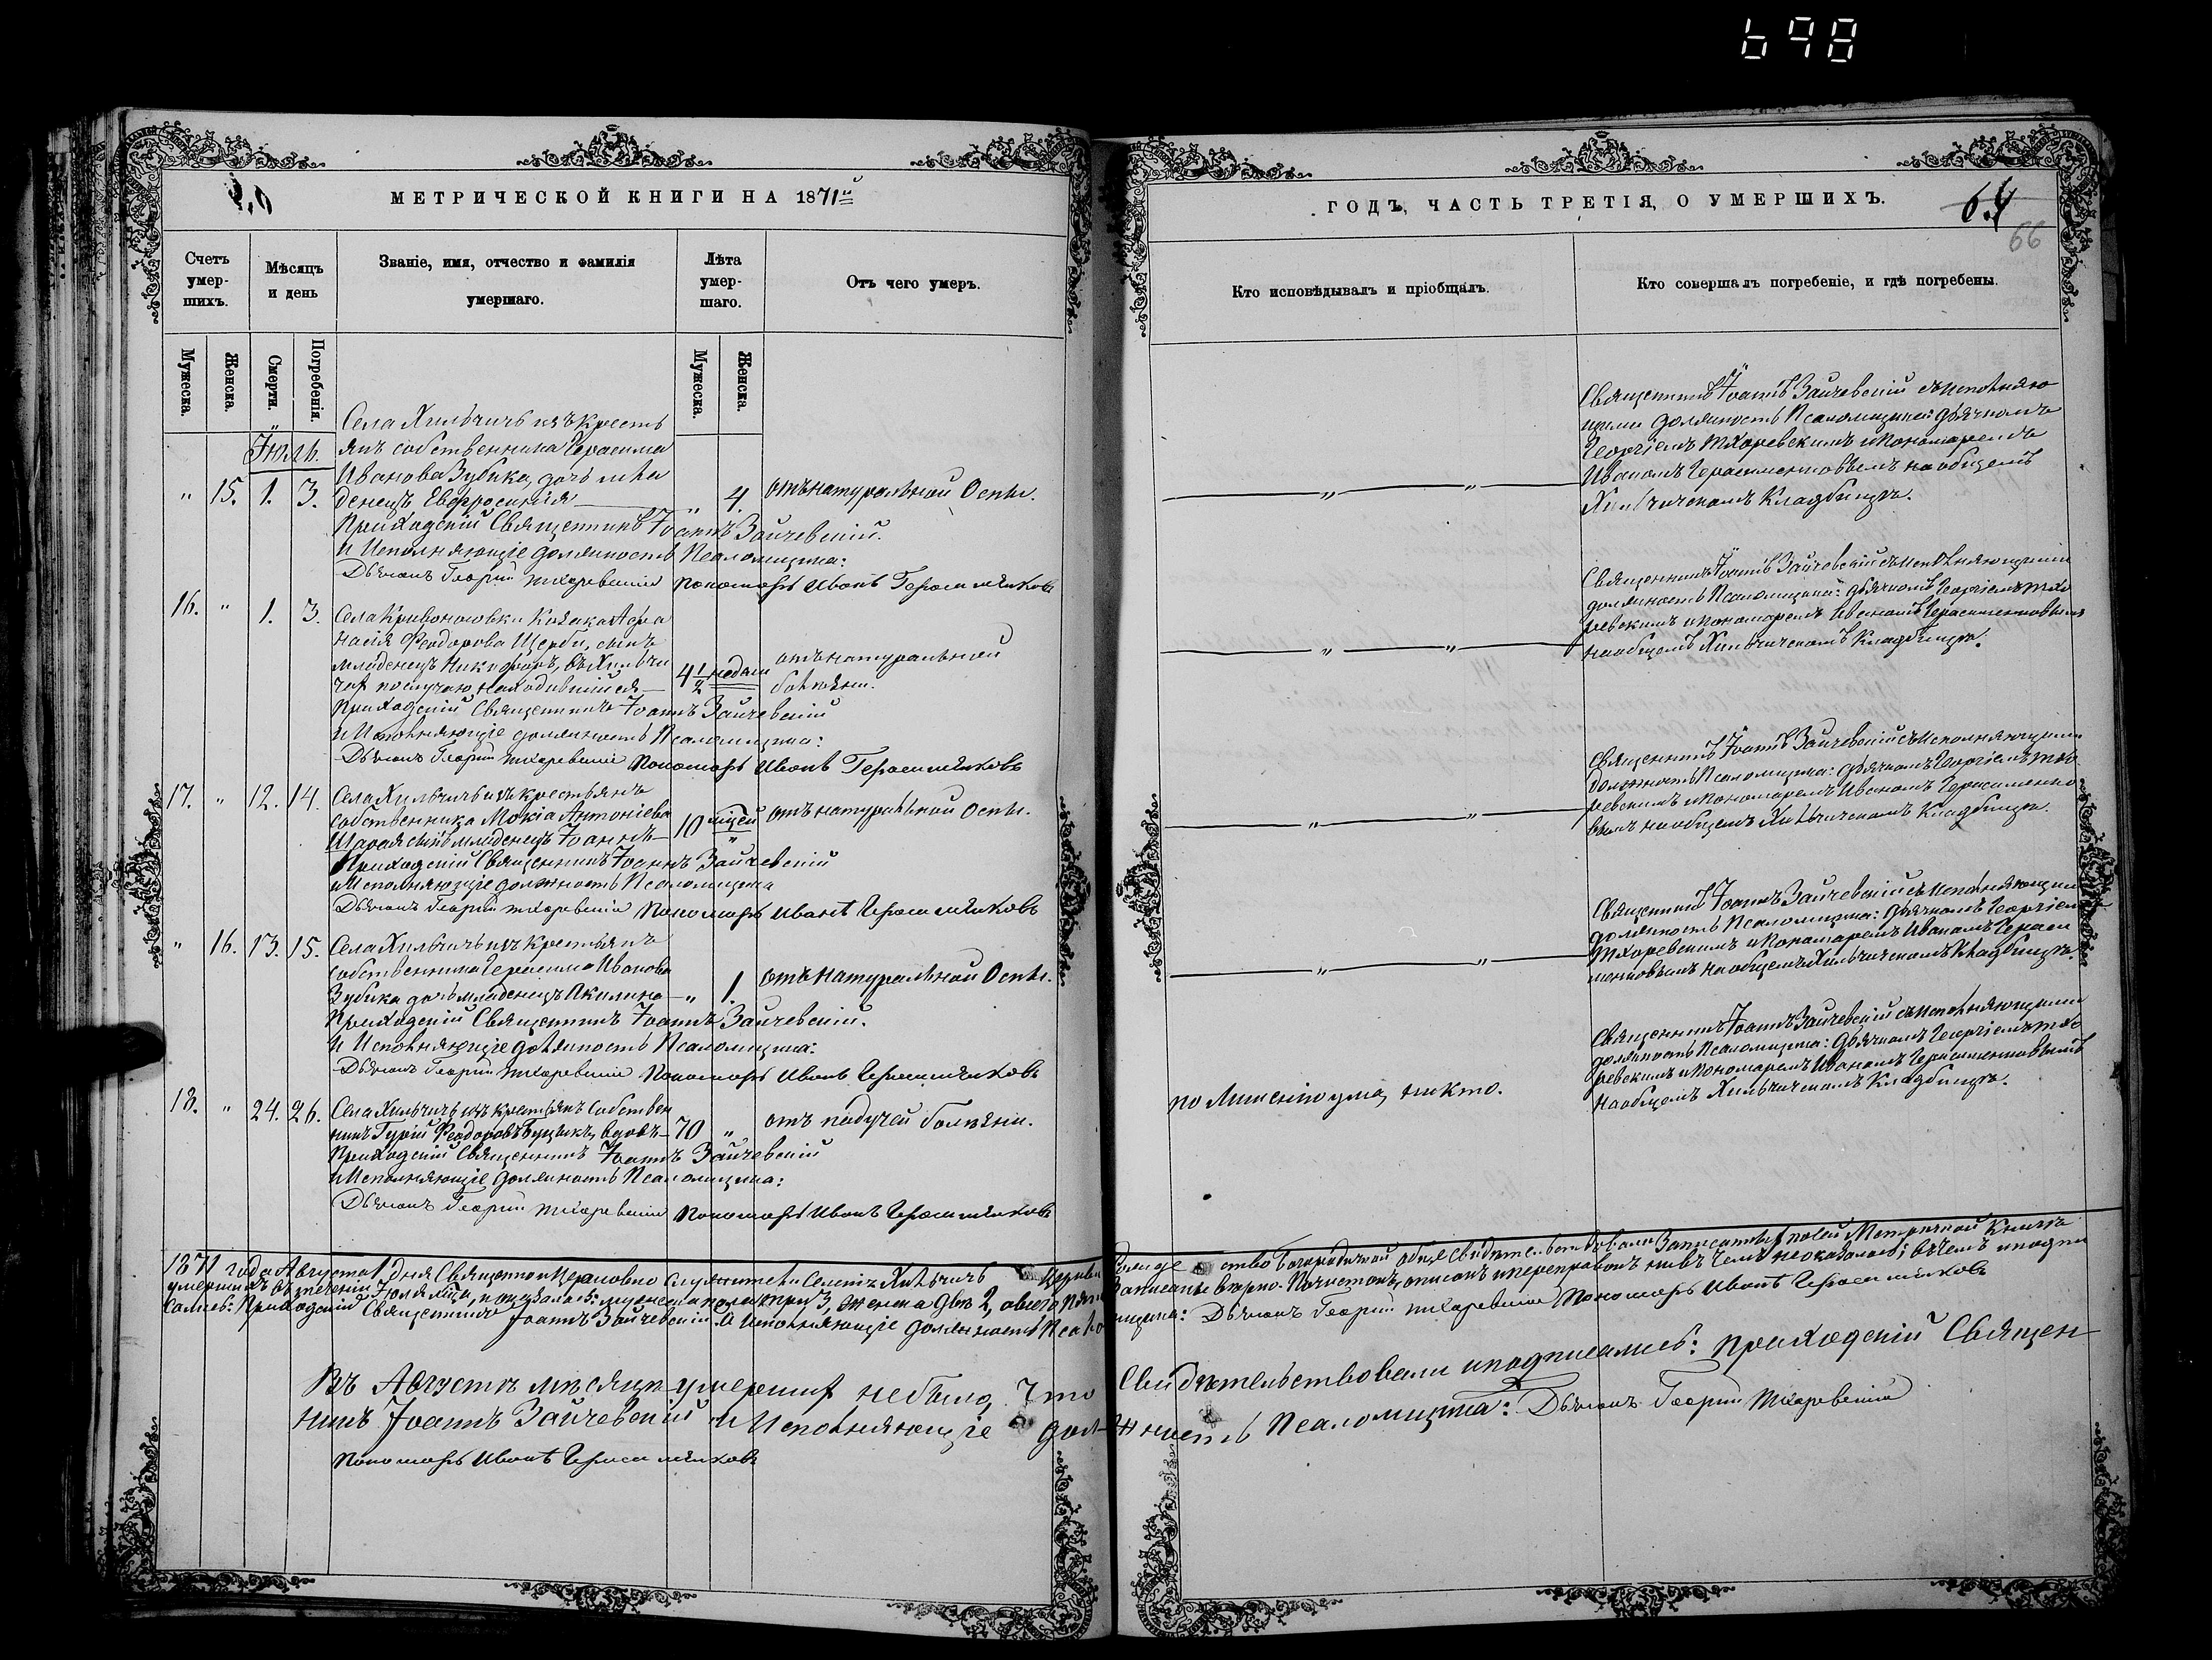 698
МЕТРИЧЕСКОЙ КНИГИ НА 1871й
ГОДЪ, ЧАСТЬ ТРЕТІЯ, О УМЕРШИХЪ.
64
66
Счетъ умер-шихъ.
Мѣсяцъ и день
Званіе, имя, отчество и фамилія умершаго.
Лѣта умер-шаго.
Отъ чего умеръ.
Кто исповѣдывалъ и пріобщалъ.
Кто совершалъ погребеніе, и гдѣ погребены.
Мужеска.
Женска.
Смерти.
Погребенія.
Мужеска.
Женска.
Іюль.
Села Хильчичъ изъ кресть
янъ собственника Герасима
Иванова Зубика, дочь мла
" 15. 1. 3. денецъ Евфросинія " 4. отъ натуральной Оспы.
Приходскій Священникъ Іоаннъ Зайчевскій.
и Исполняющіе должность Псаломщика:
Дьячокъ Георгій Тхоревскій Пономарь Иванъ Герасименковъ
Священникъ Іоаннъ Зайчевскій съ исполняю
щими должность Псаломщика: дьячкомъ
Георгіемъ Тхоревскимъ и Пономаремъ
Иваномъ Герасименковымъ на общемъ
Хильчичскомъ Кладбищѣ.
16. " 1. 3. Села Кривоносовки Козака Афа
насія Феодорова Щербы, сынъ
младенецъ Никифоръ, въ Хильчи
чах по случаю находившійся
4½ недели
отъ натуральной
болѣзни.
Приходскій Священникъ Іоаннъ Зайчевскій
и Исполняющіе должность Псаломщика:
Дьячокъ Георгій Тхоревскій Пономарь Иванъ Герасименковъ
Священникъ Іоаннъ Зайчевскій съ исполняющими
должность Псаломщика: дьячкомъ Георгіемъ Тхо
ревскимъ и Пономаремъ Иваномъ Герасименковымъ
на общемъ Хильчичскомъ Кладбищѣ.
17. " 12. 14. Села Хильчичъ изъ крестьянъ
собственника Мокія Антоніева
сынъ младенецъ Іоаннъ
10 мцей "
отъ натуральной Оспы.
Приходскій Священникъ Іоаннъ Зайчевскій
и Исполняющіе должность Псаломщика
Дьячокъ Георгій Тхоревскій Пономарь Иванъ Герасименковъ
Священникъ Іоаннъ Зайчевскій съ Исполняющими
должность Псаломщика: дьячкомъ Георгіемъ Тхо
ревскимъ и Пономаремъ Иваномъ Герасименко
вымъ на общемъ Хильчичскомъ Кладбищѣ.
" 16. 13. 15. Села Хильчичъ изъ крестьянъ
собственника Герасима Иванова
Зубика дочь младенецъ Акилина " 1. отъ натуральной Оспы.
Приходскій Священникъ Іоаннъ Зайчевскій.
и Исполняющіе должность Псаломщика:
Дьячокъ Георгій Тхоревскій Пономарь Иванъ Герасименковъ
Священникъ Іоаннъ Зайчевскій съ исполняющими
должность Псаломщика: дьячкомъ Георгіемъ
Тхоревскимъ и Пономаремъ Иваномъ Гераси
менковымъ на общемъ Хильчичскомъ Кладбищѣ.
18. " 24. 26. Села Хильчичъ изъ крестьянъ Собствен
никъ Гурій Феодоровъ вдовъ 70 " отъ падучей болѣзни.
по лишенію ума, никто.
Приходскій Священникъ Іоаннъ Зайчевскій
и Исполняющіе должность Псаломщика:
Дьячокъ Георгій Тхоревскій Пономарь Иванъ Герасименковъ
Священникъ Іоаннъ Зайчевскій съ исполняющими
должность Псаломщика: дьячкомъ Георгіемъ Тхо
ревскимъ и Пономаремъ Иваномъ Герасименковымъ
на общемъ Хильчичскомъ Кладбищѣ.
1871 года Августа 1 дня Священно и Церковно служители Села Хильчичъ Церкви Рожде ство Богородичной обще свидѣтельствовали Записанныхъ по сей Метричной Книгѣ
умершихъ въ теченіи Іюля мца, и показалось: мужеска пола три 3, женска двѣ 2, обоего пять записаны вѣрно. Почистокъ, описокъ и переправокъ ни въ чемъ не оказалось; въ чемъ и подпи
сались: Приходскій Священникъ Іоаннъ Зайчевскій. И Исполняющіе должность Псаломщика: Дьячокъ Георгій Тхоревскій Пономарь Иванъ Герасименковъ
Въ Августѣ мѣсяцѣ умершихъ небыло, Что Свидѣтельствовали и подписались: Приходскій Священ
никъ Іоаннъ Зайчевскій и Исполняющіе должность Псаломщика: Дьячокъ Георгій Тхоревскій
Пономарь Иванъ Герасименковъ